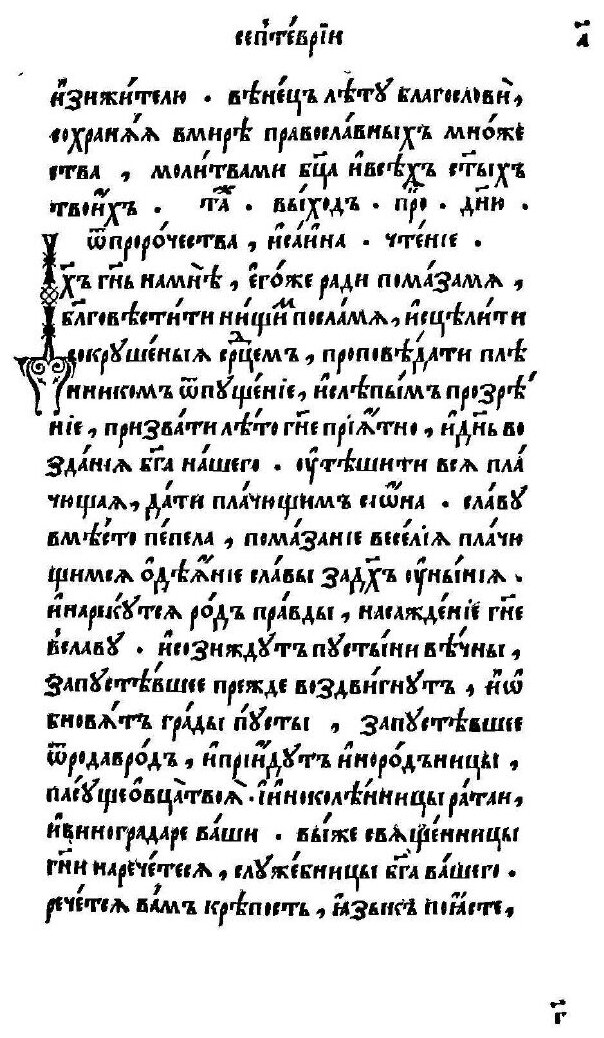 сепⷮте́врїи
а҃
и҆зижи́телю . вѣне́цъ лѣ́тꙋ благословѝ,
сохранѧ́ѧ вми́рѣ правосла́вныхъ мно́же
ства , моли́твами бц҃а и҆всѣ́хъ ст҃ы́хъ
твои́хъ . таⷤ . вы́ходъ . проⷦ . дн҃ю .
ѿпроро́чества , и҆са́иина . чте́нїе .
Дх҃ъ гн҃ь намнѣ̀ , є҆го́же ради пома́замѧ ,
бл҃говѣсти́ти ни́щиⷨ посла́мѧ , и҆сцѣли́ти
сокрꙋше́ныѧ срⷣцемъ , проповѣ́дати плѣ́
нникомъ ѿпꙋще́нїе , и҆слѣпы́мъ прозрѣ́
нїе , призва́ти лѣ́то гн҃е прїѧ́тно , и҆дн҃ь во
зда́нїѧ бг҃а на́шего . оу҆тѣ́шити всѧ̀ пла́
чющаѧ , да́ти пла́чющимъ сїѡ́на . сла́вꙋ
вмѣ́сто пе́пела , пома́занїе весе́лїѧ пла́чю
щимсѧ ѻ҆дѣѧ́нїе сла́вы задх҃ъ оу҆ны́нїѧ .
и҆нарекꙋ́тсѧ ро́дъ пра́вды , насажде́нїе гн҃е
всла́вꙋ . и҆сози́ждꙋтъ пꙋсты́ни вѣ́чны ,
запꙋстѣ́вшее пре́жде воздви́гнꙋтъ , и҆ѡ҆
бновѧ́тъ гра́ды пꙋсты , запꙋстѣ́вшее
ѿро́давро́дъ , и҆прїи́дꙋтъ и҆норо́дъницы ,
пасꙋ́ще ѻ҆вца̀ твоѧ̀ . и҆и҆ноколѣ́нницы ра́таи ,
и҆виногра́даре ва́ши . вы́же свѧще́нницы
гн҃и нарече́тесѧ , слꙋже́бницы бг҃а ва́шего .
рече́тсѧ ва́мъ крѣ́пость , и҆ꙗ҆зы́къ поꙗ҆сте ,
г҃